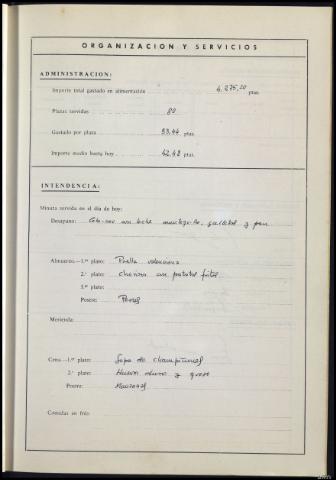 ORGANIZACION Y SERVICIOS
ADMINISTRACION:
Importe total gastado en alimentación 4.275,20 ptas.
Plazas servidas 80
Gastado por plaza 53,44 ptas.
Importe medio hasta hoy 42,48 ptas.
INTENDENCIA:
Minuta servida en el día de hoy:
Desayuno: Cola-cao con leche mantequilla, galletas y pan
Almuerzo.—1.er plato: Paella valenciana
2.º plato: chorizo con patatas fritas
3.er plato:
Postre: Peras
Merienda:
Cena.—1.er plato: Sopa de champiñones
2.º plato: Huevo duro y queso
Postre: Manzanas
Comidas en frío: